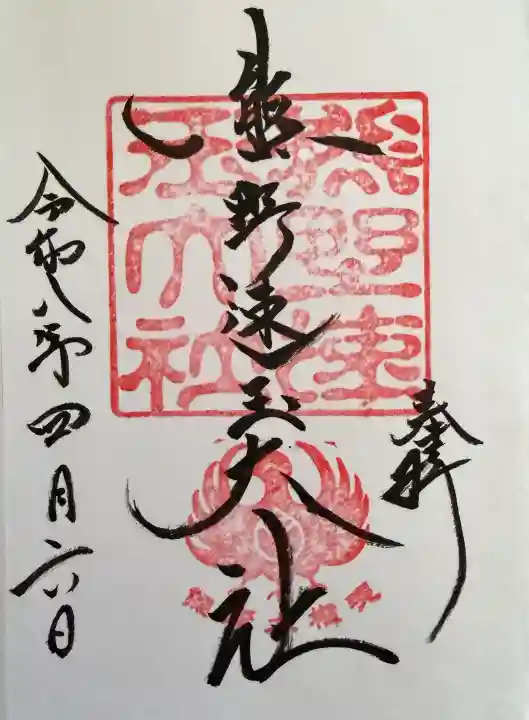 奉拝
熊野速玉大社
令和八年四月六日
熊野速玉大社